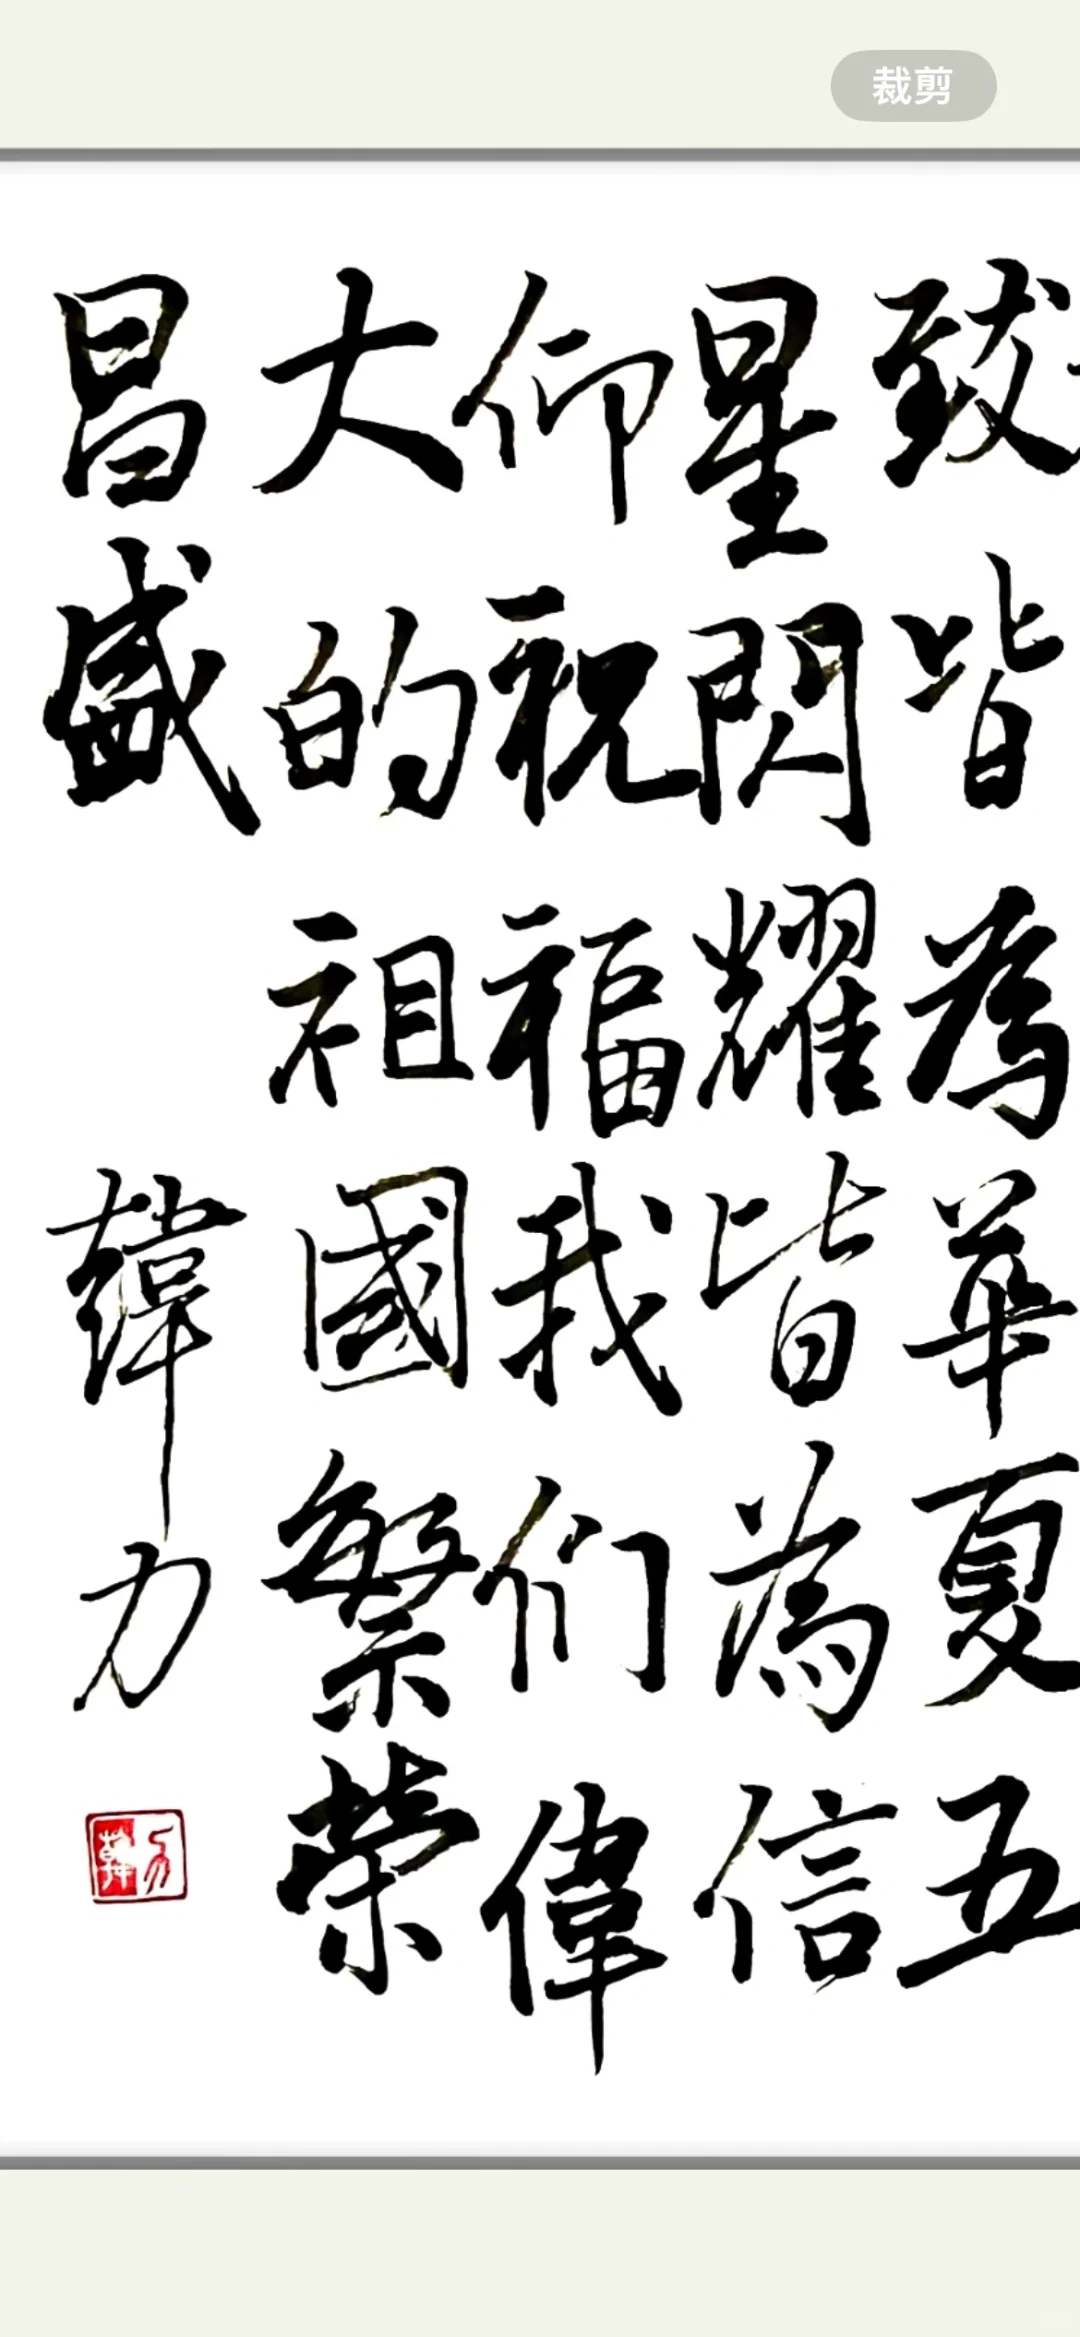 裁剪
致皆為華夏五
星閃耀皆為信
仰祝福我們偉
大的祖國繁榮
昌盛
韓力